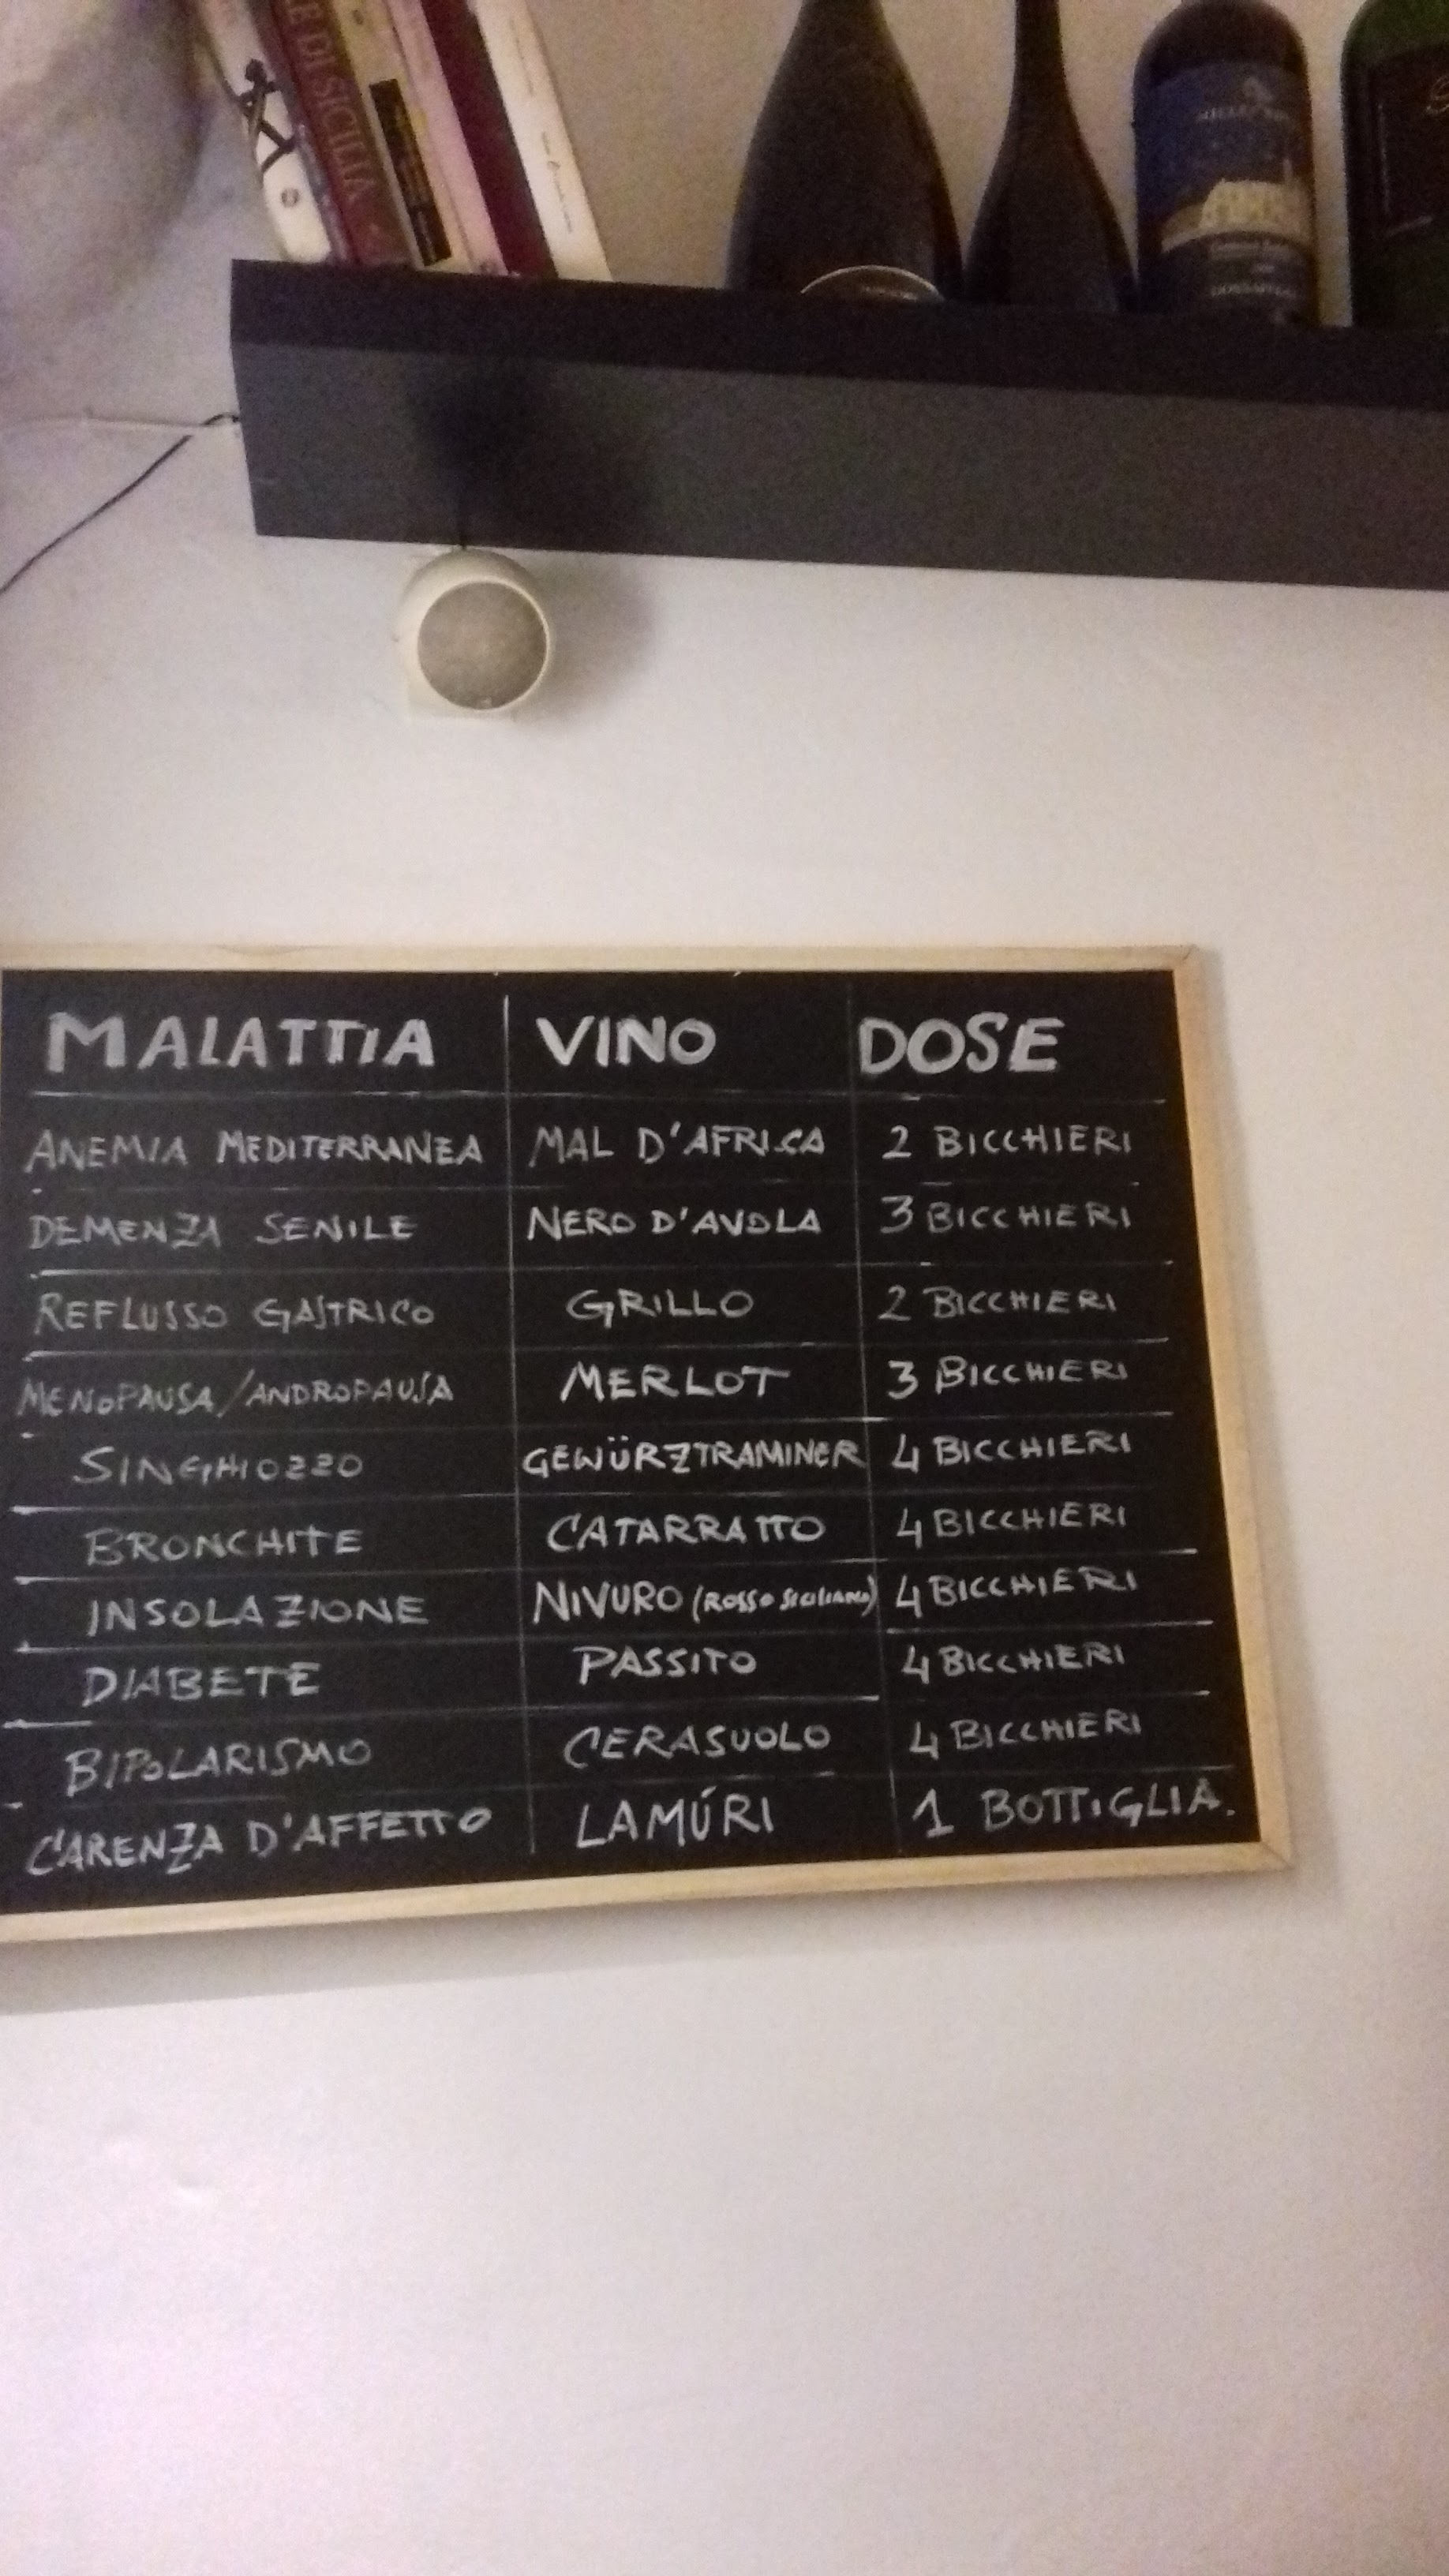 LE DI SICILIA
MALATTIA VINO DOSE
ANEMIA MEDITERRANEA MAL D'AFRICA 2 BICCHIERI
DEMENZA SENILE NERO D'AVOLA 3 BICCHIERI
REFLUSSO GASTRICO GRILLO 2 BICCHIERI
MENOPAUSA/ANDROPAUSA MERLOT 3 BICCHIERI
SINGHIOZZO GEWÜRZTRAMINER 4 BICCHIERI
BRONCHITE CATARRATTO 4 BICCHIERI
INSOLAZIONE NIVURO (ROSSO SICILIANO) 4 BICCHIERI
DIABETE PASSITO 4 BICCHIERI
BIPOLARISMO CERASUOLO 4 BICCHIERI
CARENZA D'AFFETTO LAMÚRI 1 BOTTIGLIA.